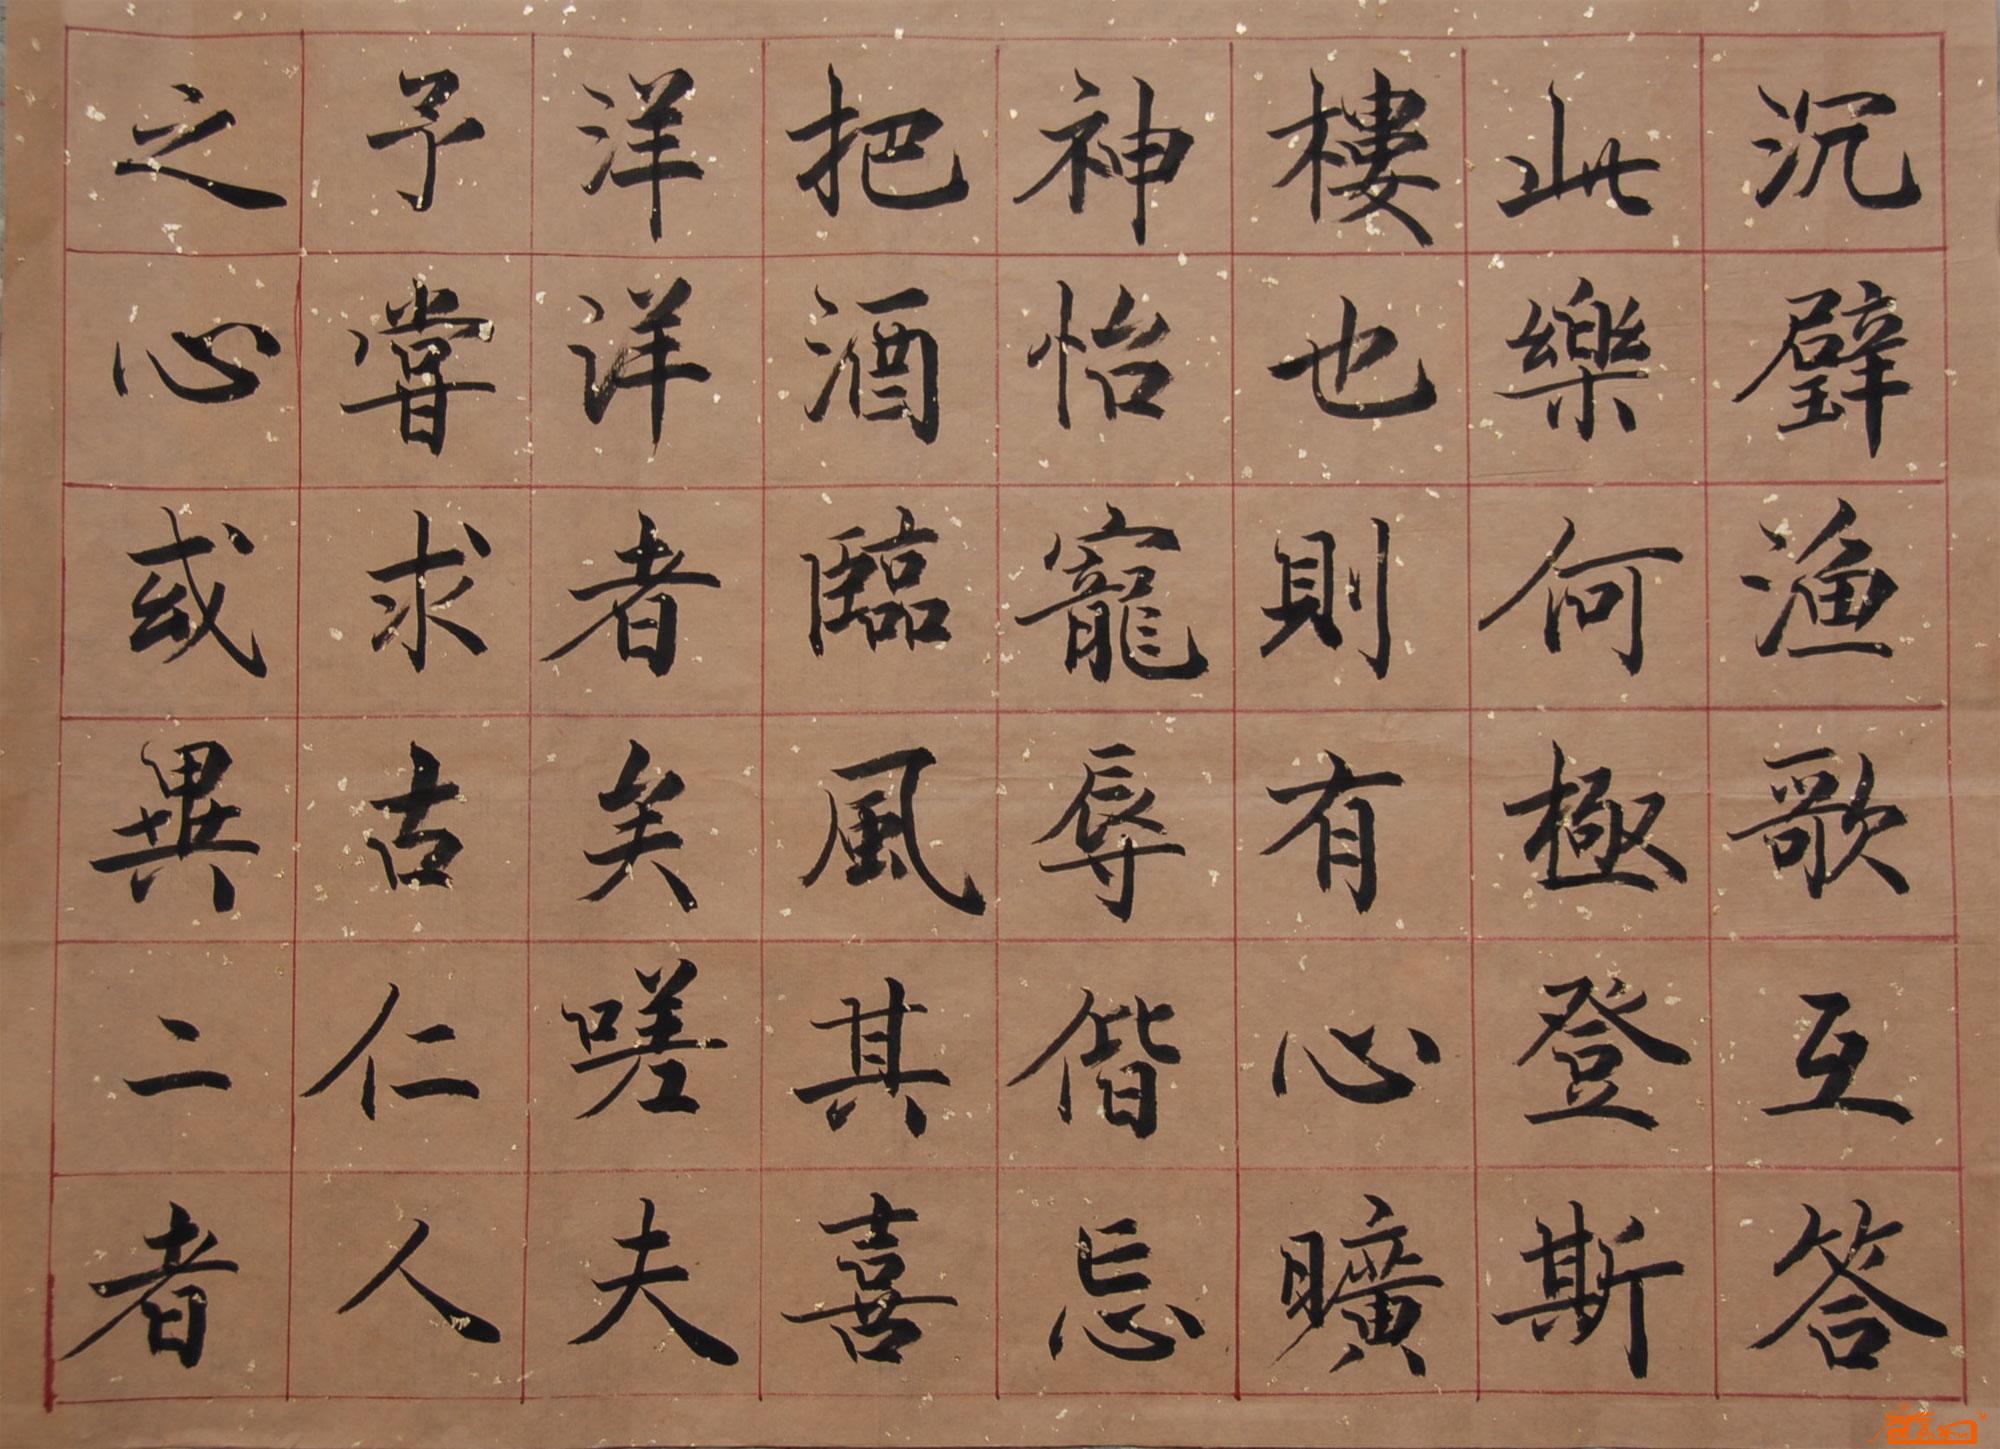 沉璧漁歌互答
此樂何極登斯
樓也則有心曠
神怡寵辱偕忘
把酒臨風其喜
洋洋者矣嗟夫
予嘗求古仁人
之心或異二者